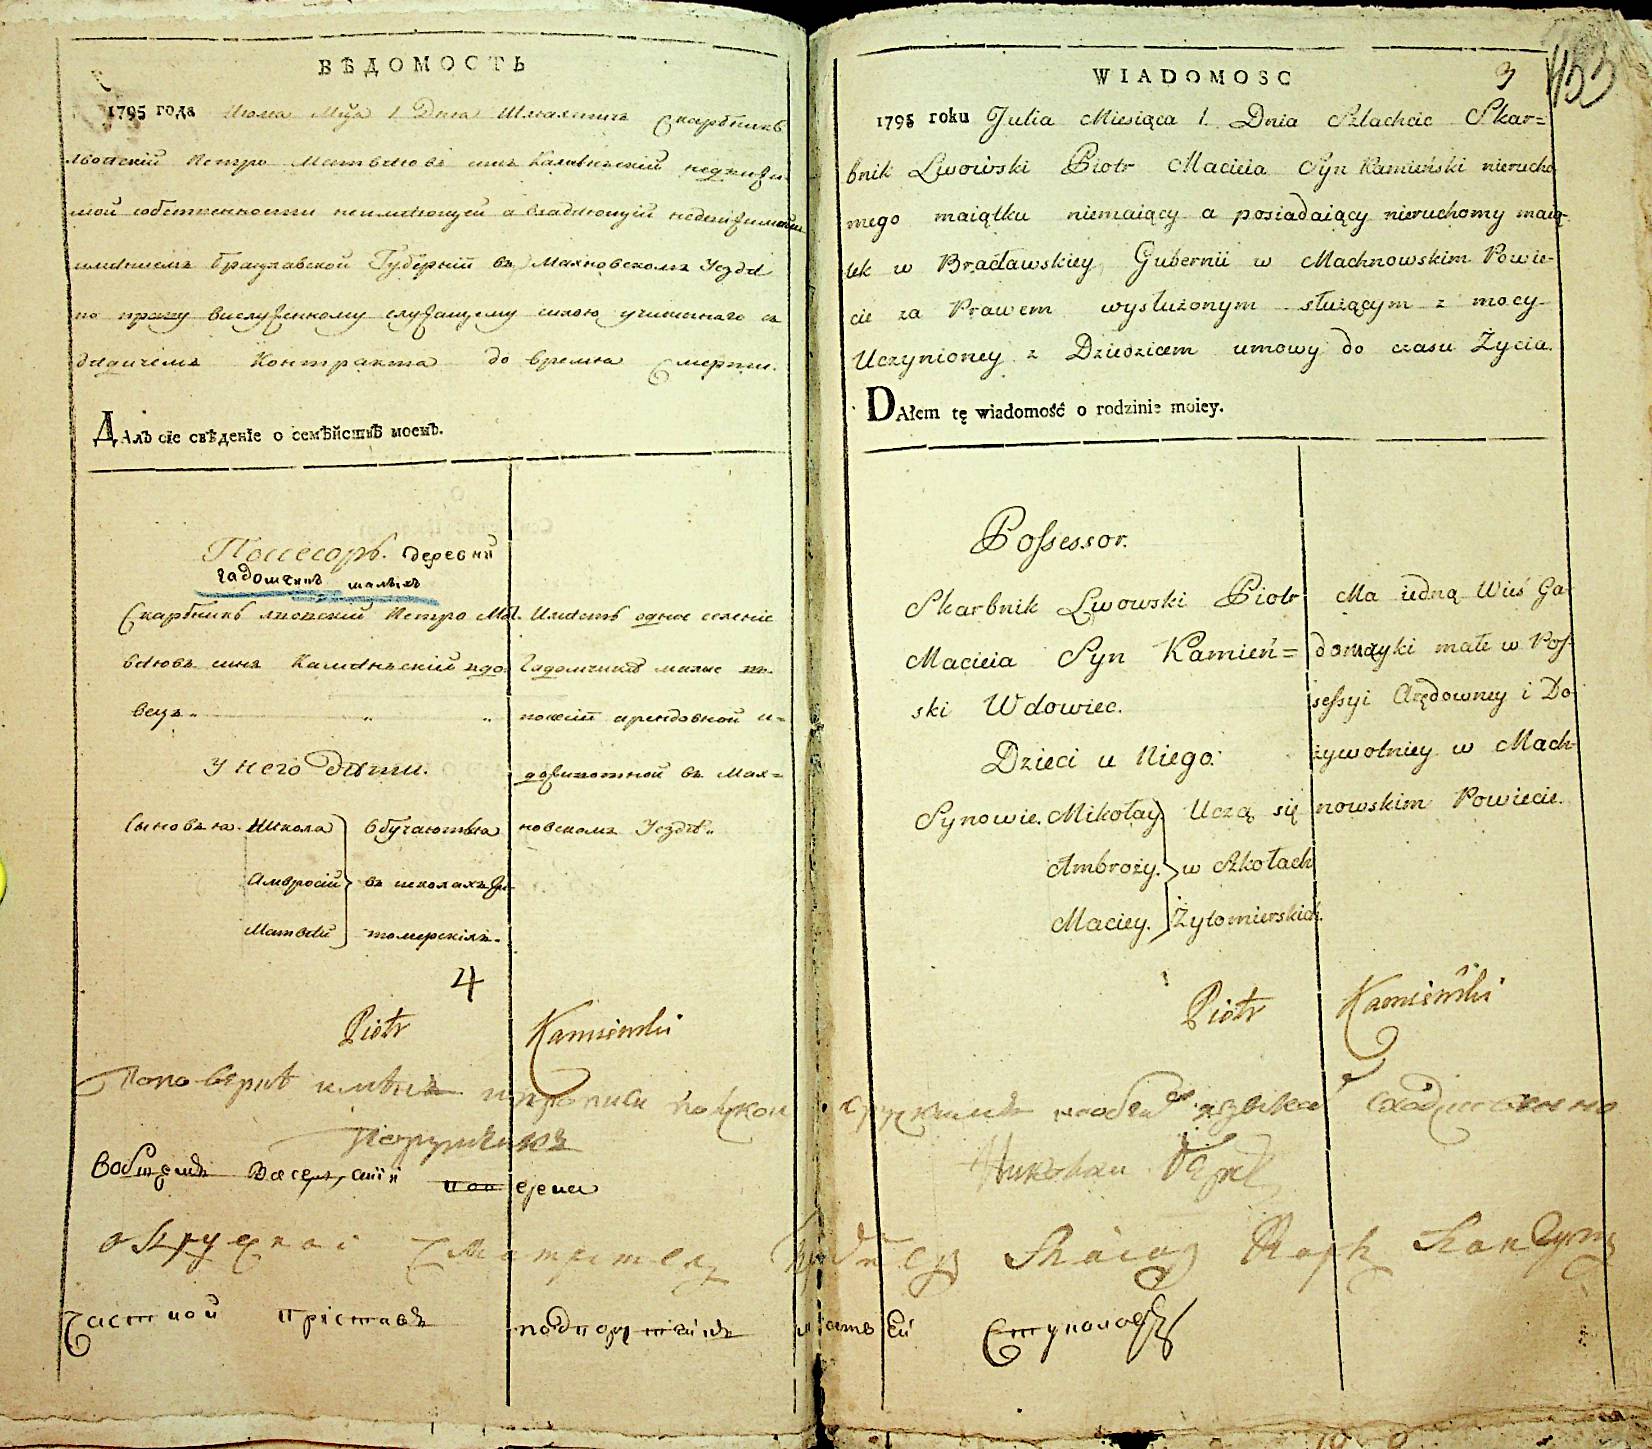 ВѢДОМОСТЬ
1795 года Июля Мца 1 Дня Шляхтичъ Скарбникъ
Львовскій Петро Матвѣювъ сынъ Каменьскій недвижи-
мой собственности неимеющей а владеющій недвижимымъ
имениемъ Брацлавской Губерніи въ Махновскомъ Уезде
по праву выслуженному служащему силою учиненаго съ
дедичемъ Контракта до времня Смерти.
ДАлъ сїе свѣденїе о семѣйствѣ моемъ.
Поссесоръ. деревни
Гадомчикъ малыхъ
Скарбникъ львовскій Петро Мат-
веювъ сынъ Каменьскій вдо-
вецъ
У него дѣти.
Сыновья Никола обучаются
Амвросій въ школахъ Жи-
Матвей томерскихъ.
Имеетъ одное селеніе
Гадомчики малые въ
посесіи арендовной и
доживотной въ Мах=
новскомъ Уезде
4
Piotr Kamieński
WIADOMOSC
3
453
1795 roku Julia Miesiąca 1. Dnia Szlachcic Skar=
bnik Lwowski Piotr Macieia Syn Kamieński nierucho
mego maiątku niemaiący a posiadaiący nieruchomy maią
tek w Bracławskiey Gubernii w Machnowskim Powie-
cie za Prawem wysłużonym służącym z mocy
Uczynioney z Dziedzicem umowy do czasu Życia.
DAłem tę wiadomość o rodzinie moiey.
Possessor.
Skarbnik Lwowski Piotr
Macieia Syn Kamień=
ski Wdowiec.
Dzieci u Niego.
Synowie. Mikołay Uczą się
Ambroży. w Szkołach
Maciey. Żytomierskich
Ma iedną Wieś Ga
domczyki małe w Pos-
sessyi Arędowney i Do
żywotniey w Mach
nowskim Powiecie.
Piotr Kamieński
Порутчикъ
Николаи
частной приставъ подпорутчикъ матвей Ступаковъ